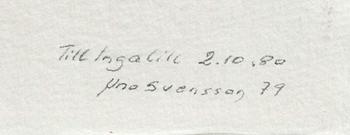 Till Ingalill 2.10.80
Uno Svensson 79